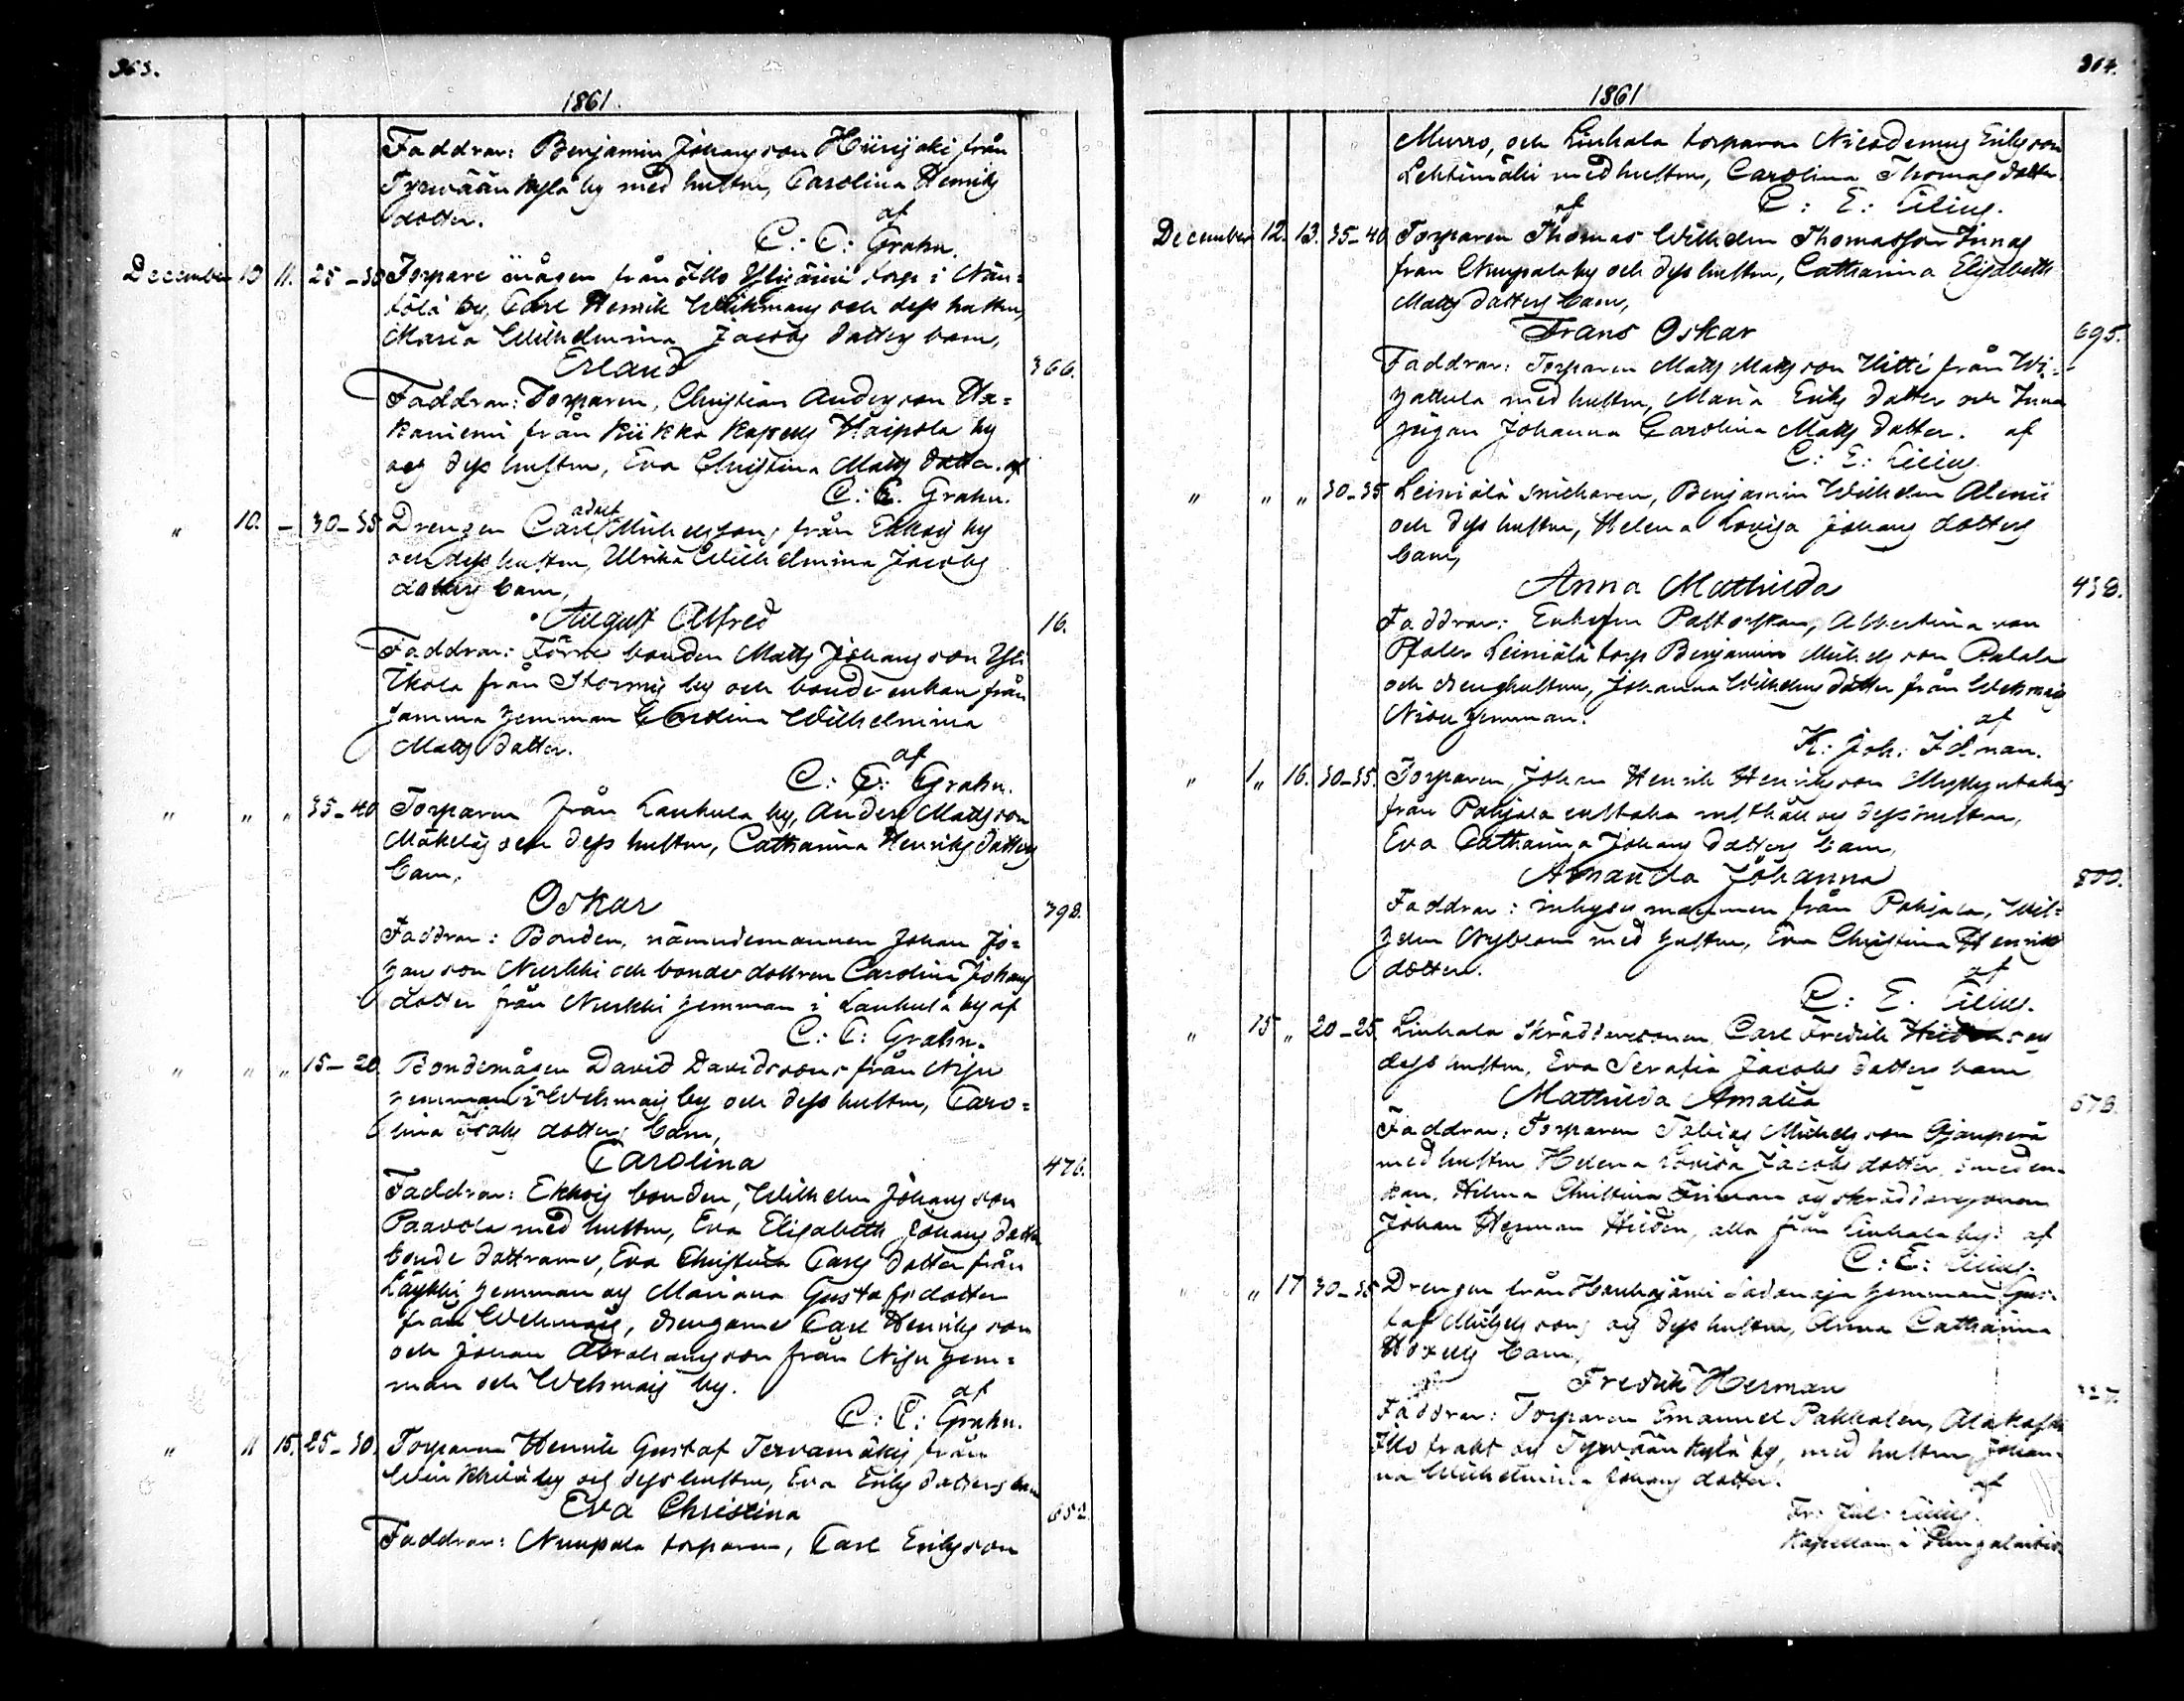 363.
1861.
Faddrar: Benjamin Johansson Hiirijoki från
Tyrvään kylä by med hustru, Carolina Henriks
dotter. af
C: E: Grahn.
December 10 11. 25-35 Torpare mågen från Illo torp i Nän=
tölä by, Carl Henrik Wikmans och dess hustru,
Maria Wilhelmina Jacobs dotters barn,
Erland 366.
Faddrar: Torparen, Christian Andersson Ha=
kaniemi från Kiikka Kapells Haipola by
och dess hustru, Eva Christina Matts dotter. af
C: E. Grahn.
" 10. - 30-35 Drengen Carl Adolf Michelssons från Ekkois by
och dess hustru, Ulrika Wilhelmina Jacobs
dotters barn,
August Alfred 16.
Faddrar: Förre bonden Matts Johansson Yli
Ikola från Stormis by och bonde enkan från
samma hemman Carolina Wilhelmina
Matts dotter. af
C: E: Grahn.
" " " 35-40 Torparen från Laukula by, Anders Mattsson
Mäkeläs och dess hustru, Catharina Henriks dotters
barn,
Oskar 398.
Faddrar: Bonden, nämndemannen Johan Jo=
hansson Nurkki och bonde dottren Carolina Johans
dotter från Nurkki hemman i Laukula by af
C: E: Grahn.
" " " 15-20 Bondemågen David Davidssons från Niju
hemman i Wehmais by och dess hustru, Caro=
lina Isaks dotters barn,
Carolina 476.
Faddrar: Ekkois bonden, Wilhelm Johansson
Paavola med hustru, Eva Elisabeth Johans dotter
bonde dottrarne, Eva Christina Carls dotter från
Läykki hemman och Mariana Gustafs dotter
från Wehmais, drengarne Carl Henriksson
och Johan Abrahamsson från Niju hem=
man och Wehmais by. af
C: E: Grahn.
" 11 15. 25-30. Torparen Henrik Gustaf Tervamäkis från
by och dess hustru, Eva Eriks dotters barn
Eva Christina 652
Faddrar: Nuupala torparen, Carl Eriksson
364.
1861
Murro, och Liuhala torparen Nicodemus Eriksson
Lehtimäki med hustru, Carolina Thomas dotter.
af C: E: Cilius.
December 12. 13. 35-40 Torparen Thomas Wilhelm Thomasson Innas
från Nuupala by och dess hustru, Catharina Elisabeth
Matts dotters barn,
Frans Oskar 695.
Faddrar: Torparen Matts Mattsson Uitti från
med hustru, Maria Eriks dotter och Inna
pigan Johanna Carolina Matts dotter. af
C: E: Cilius.
" " " 30-35 Leiniälä snickaren, Benjamin Wilhelm Alenii
och dess hustru, Helena Lovisa Johans dotters
barn,
Anna Mathilda 438.
Faddrar: Enkefru Pastorskan, Albertina von
Pfaler Leiniälä torp Benjamin Michelsson
och drenghustrun, Johanna Wilhelms dotter från Wehmais
hemman. af
K: Joh: Idman.
" 1" 16. 30-35. Torparen, Johan Henrik Henriksson
från Pohjala rusthåll och dess hustru,
Eva Catharina Johans dotters barn,
Amanda Johanna 800.
Faddrar: inhyses mannen från Pohjala, Wil=
helm Nyblom med hustru, Eva Christina Henriks
dotter. af
C: E. Cilius.
" 15 " 20-25. Liuhala Skräddaresonen, Carl Fredrik Hiidens och
dess hustru, Eva Serafia Jacobs dotters barn
Mathilda Amalia 578.
Faddrar: Torparen Tobias Michelsson Ojanperä
med hustru Helena Lovisa Jacobs dotter,
Hilma Christina Friman och skräddaresonen
Johan Herman Hiiden, alla från Liuhala by: af
C: E: Cilius.
" " 17 30-35 Drengen från hemman Gus-
taf Michelssons och dess hustru, Anna Catharina
barn,
Fredrik Herman
Faddrar: Torparen Emanuel Pakkalen,
Illo trakt och Tyrvään kylä by, med hustru, Johan-
na Wilhelmina Johans dotter. af
Fr: Cilius.
Kapellan i